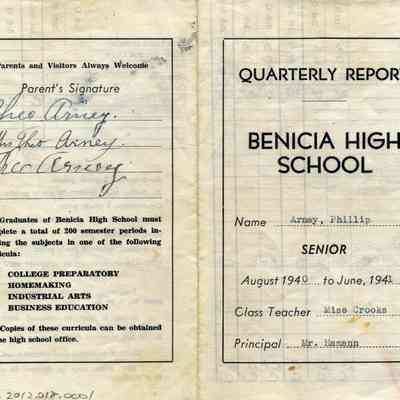 Parents and Visitors Always Welcome
Parent's Signature
Theo Arney.
Mrs Theo Arney.
Theo Arney
Graduates of Benicia High School must
plete a total of 200 semester periods in-
ing the subjects in one of the following
icula:
COLLEGE PREPARATORY
HOMEMAKING
INDUSTRIAL ARTS
BUSINESS EDUCATION
Copies of these curricula can be obtained
he high school office.
2012.018.0001
QUARTERLY REPORT
BENICIA HIGH
SCHOOL
Name Arney, Phillip
SENIOR
August 1940 to June, 1941
Class Teacher Miss Crooks
Principal Mr. Hamann